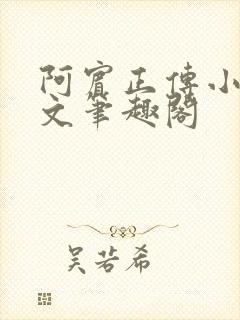 阿賓正傳小
文筆趣閣
吴若希